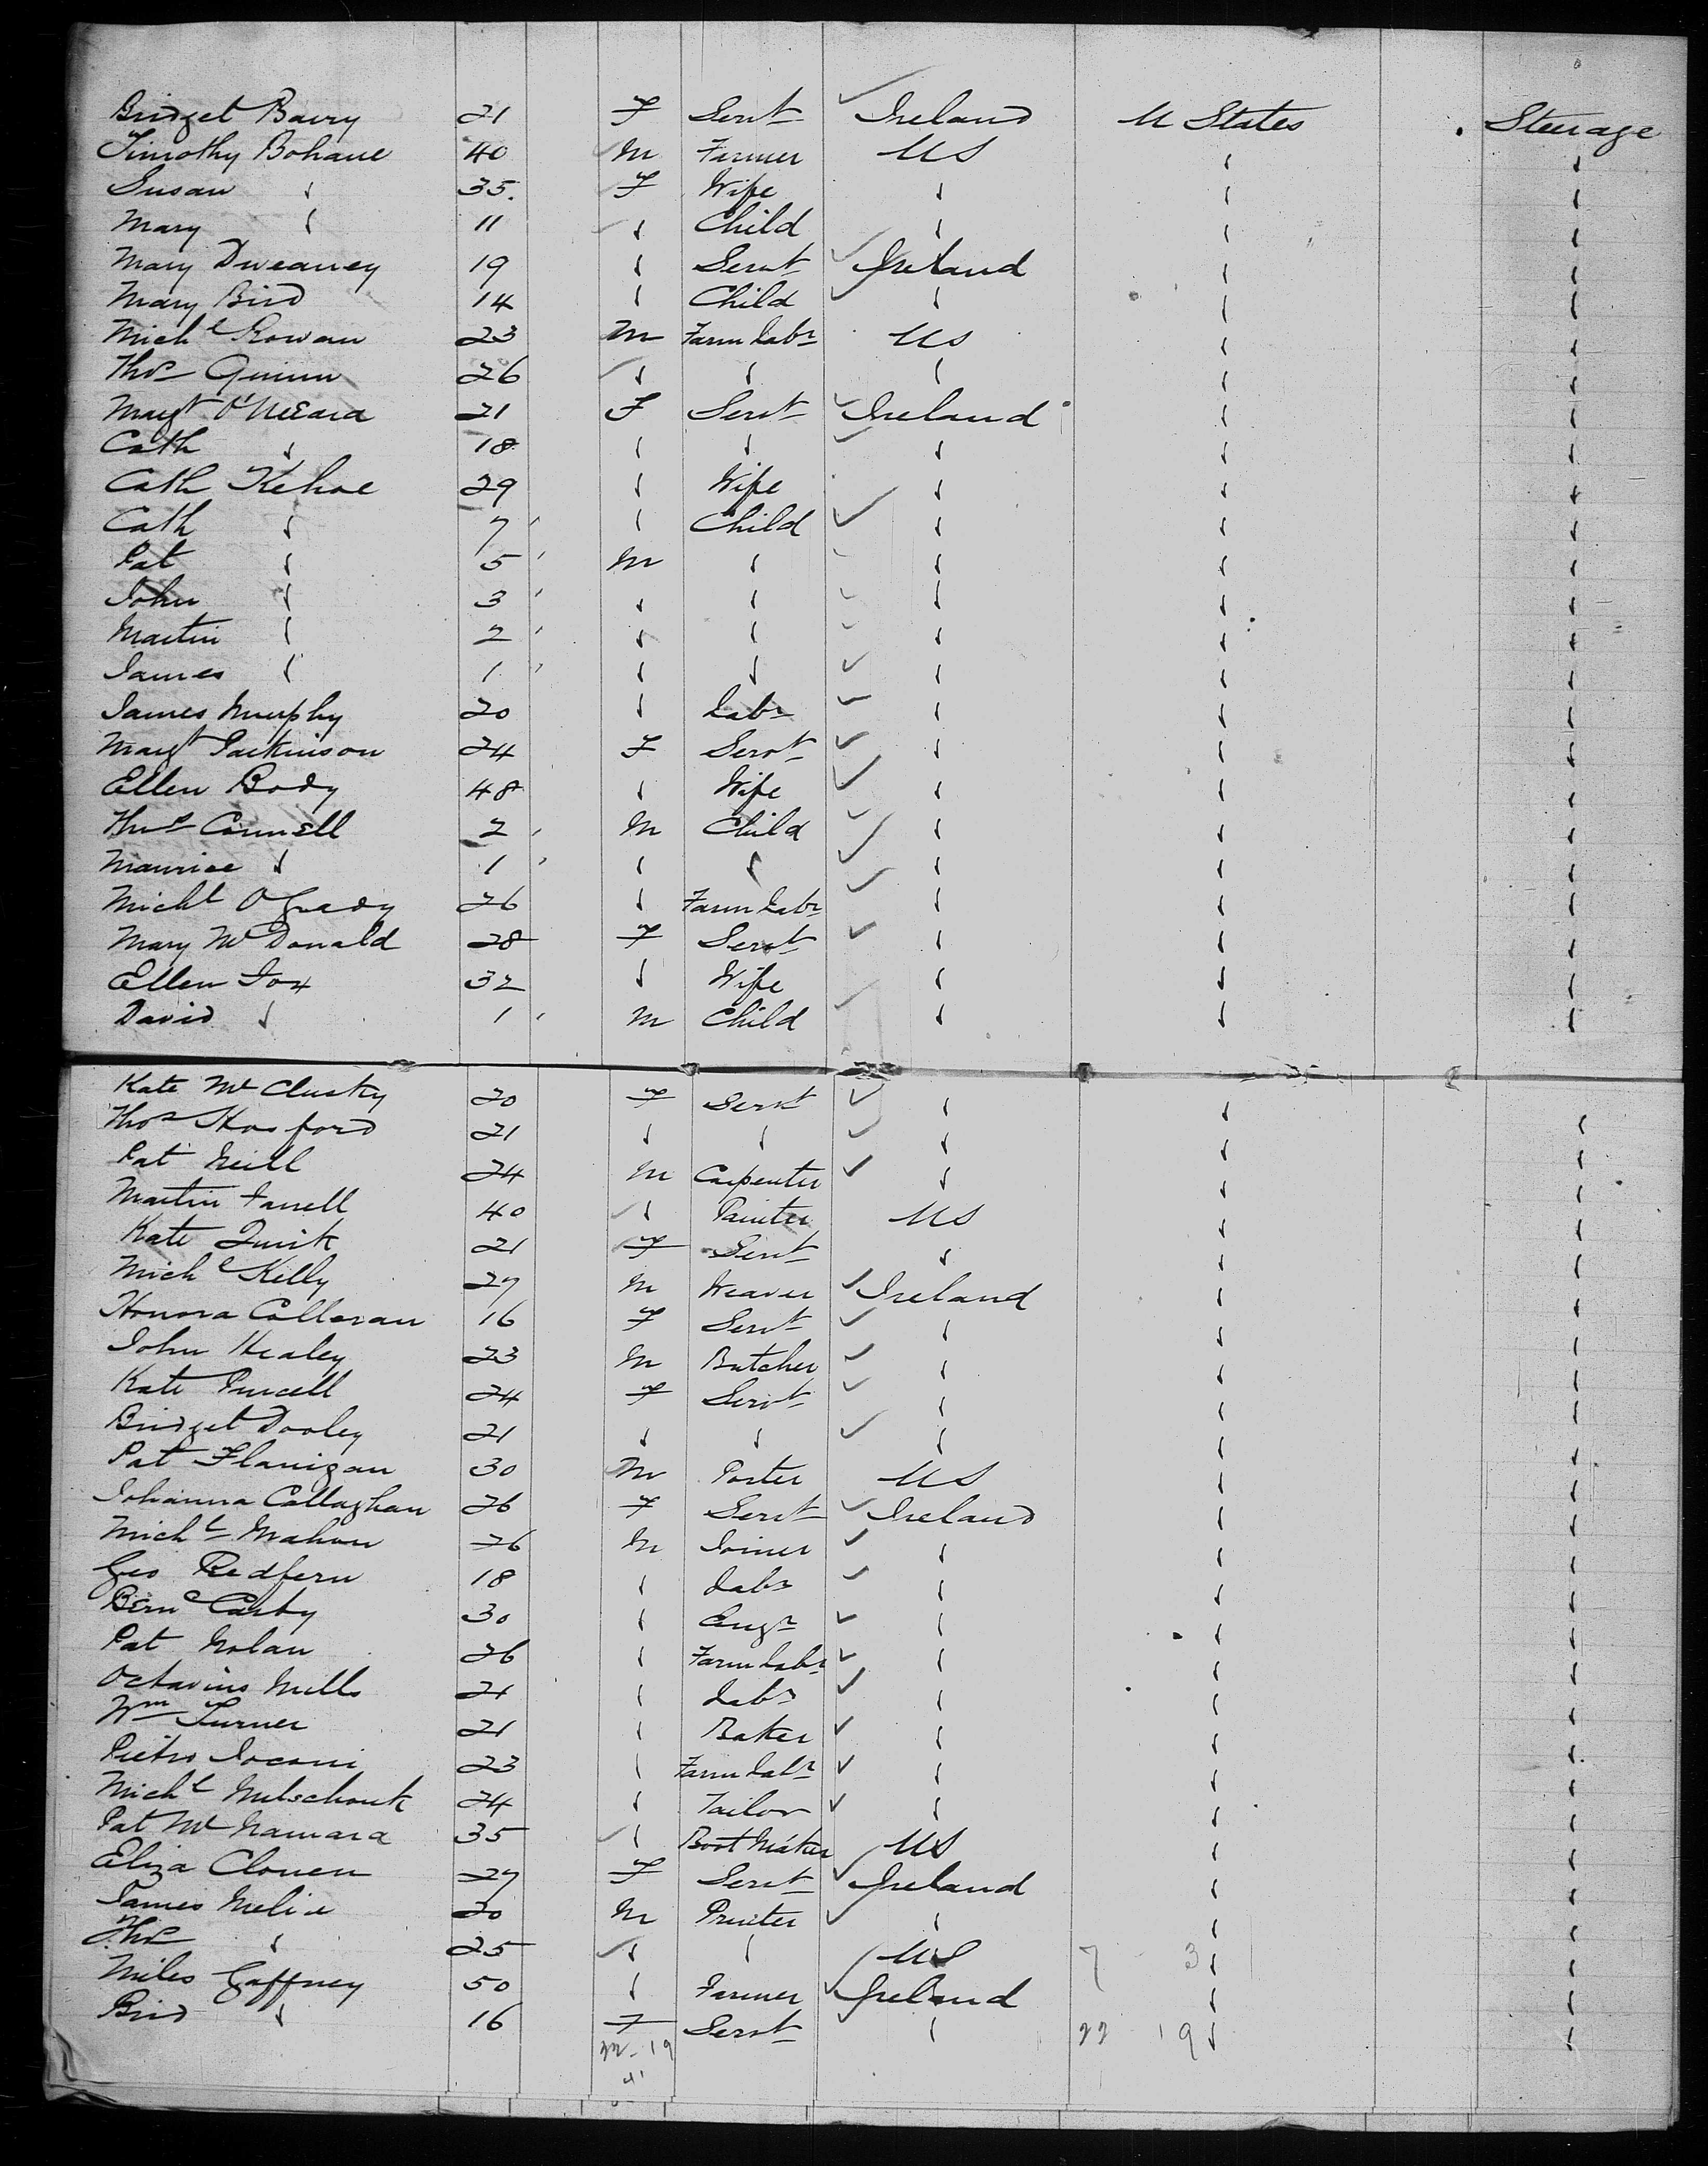 Bridget Barry 21 F Servt Ireland U States Steerage
Timothy Bohane 40 M Farmer US
Susan " 35. F Wife " " "
Mary " 11 " Child " " "
Mary Dweaney 19 " Servt Ireland " "
Mary Bird 14 " Child " " "
Michl Rowan 23 M Farm Labr US " "
Thos Quinn 26 " " " " "
Margt O'Meara 21 F Servt Ireland " "
Cath " 18 " " " " "
Cath Kehoe 29 " Wife " " "
Cath " 7 " Child " " "
Pat " 5 M " " " "
John " 3 " " " " "
Martin " 2 " " " " "
James " 1 " " " " "
James Murphy 20 " Labr " " "
Margt Parkinson 24 F Servt " " "
Ellen Body 48 " Wife " " "
Thos Connell 2 M Child " " "
Maurice " 1 " " " " "
Michl O'Grady 26 " Farm Labr " " "
Mary McDonald 28 F Servt " " "
Ellen Fox 32 " Wife " " "
David " 1 M Child " " "
Kate McClusky 20 F Servt " " "
Thos Hosford 21 " " " " "
Pat Neill 24 M Carpenter " " "
Martin Farrell 40 " Painter US " "
Kate Quirk 21 F Servt " " "
Michl Kelly 27 M Weaver Ireland " "
Honora Colleran 16 F Servt " " "
John Healey 23 M Butcher " " "
Kate Purcell 24 F Servt " " "
Bridget Dooley 21 " " " " "
Pat Flanigan 30 M Porter US " "
Johanna Callaghan 26 F Servt Ireland " "
Michl Mahon 26 M Joiner " " "
Geo Redfern 18 " Labr " " "
Bernd Carty 30 " Engr " " "
Pat Nolan 26 " Farm Labr " " "
Octavius Mills 21 " Labr " " "
Wm Turner 21 " Baker " " "
Pietro Iaconi 23 " Farm Labr " " "
Michl 24 " Tailor " " "
Pat McNamara 35 " Boot Maker US " "
Eliza Clowen 27 F Servt Ireland " "
James Melie 20 M Printer " " "
Thos " 25 " " US 7 3 " "
Miles Gaffney 50 " Farmer Ireland " "
Brid " 16 F Servt " 22 19 " "
22-19
41